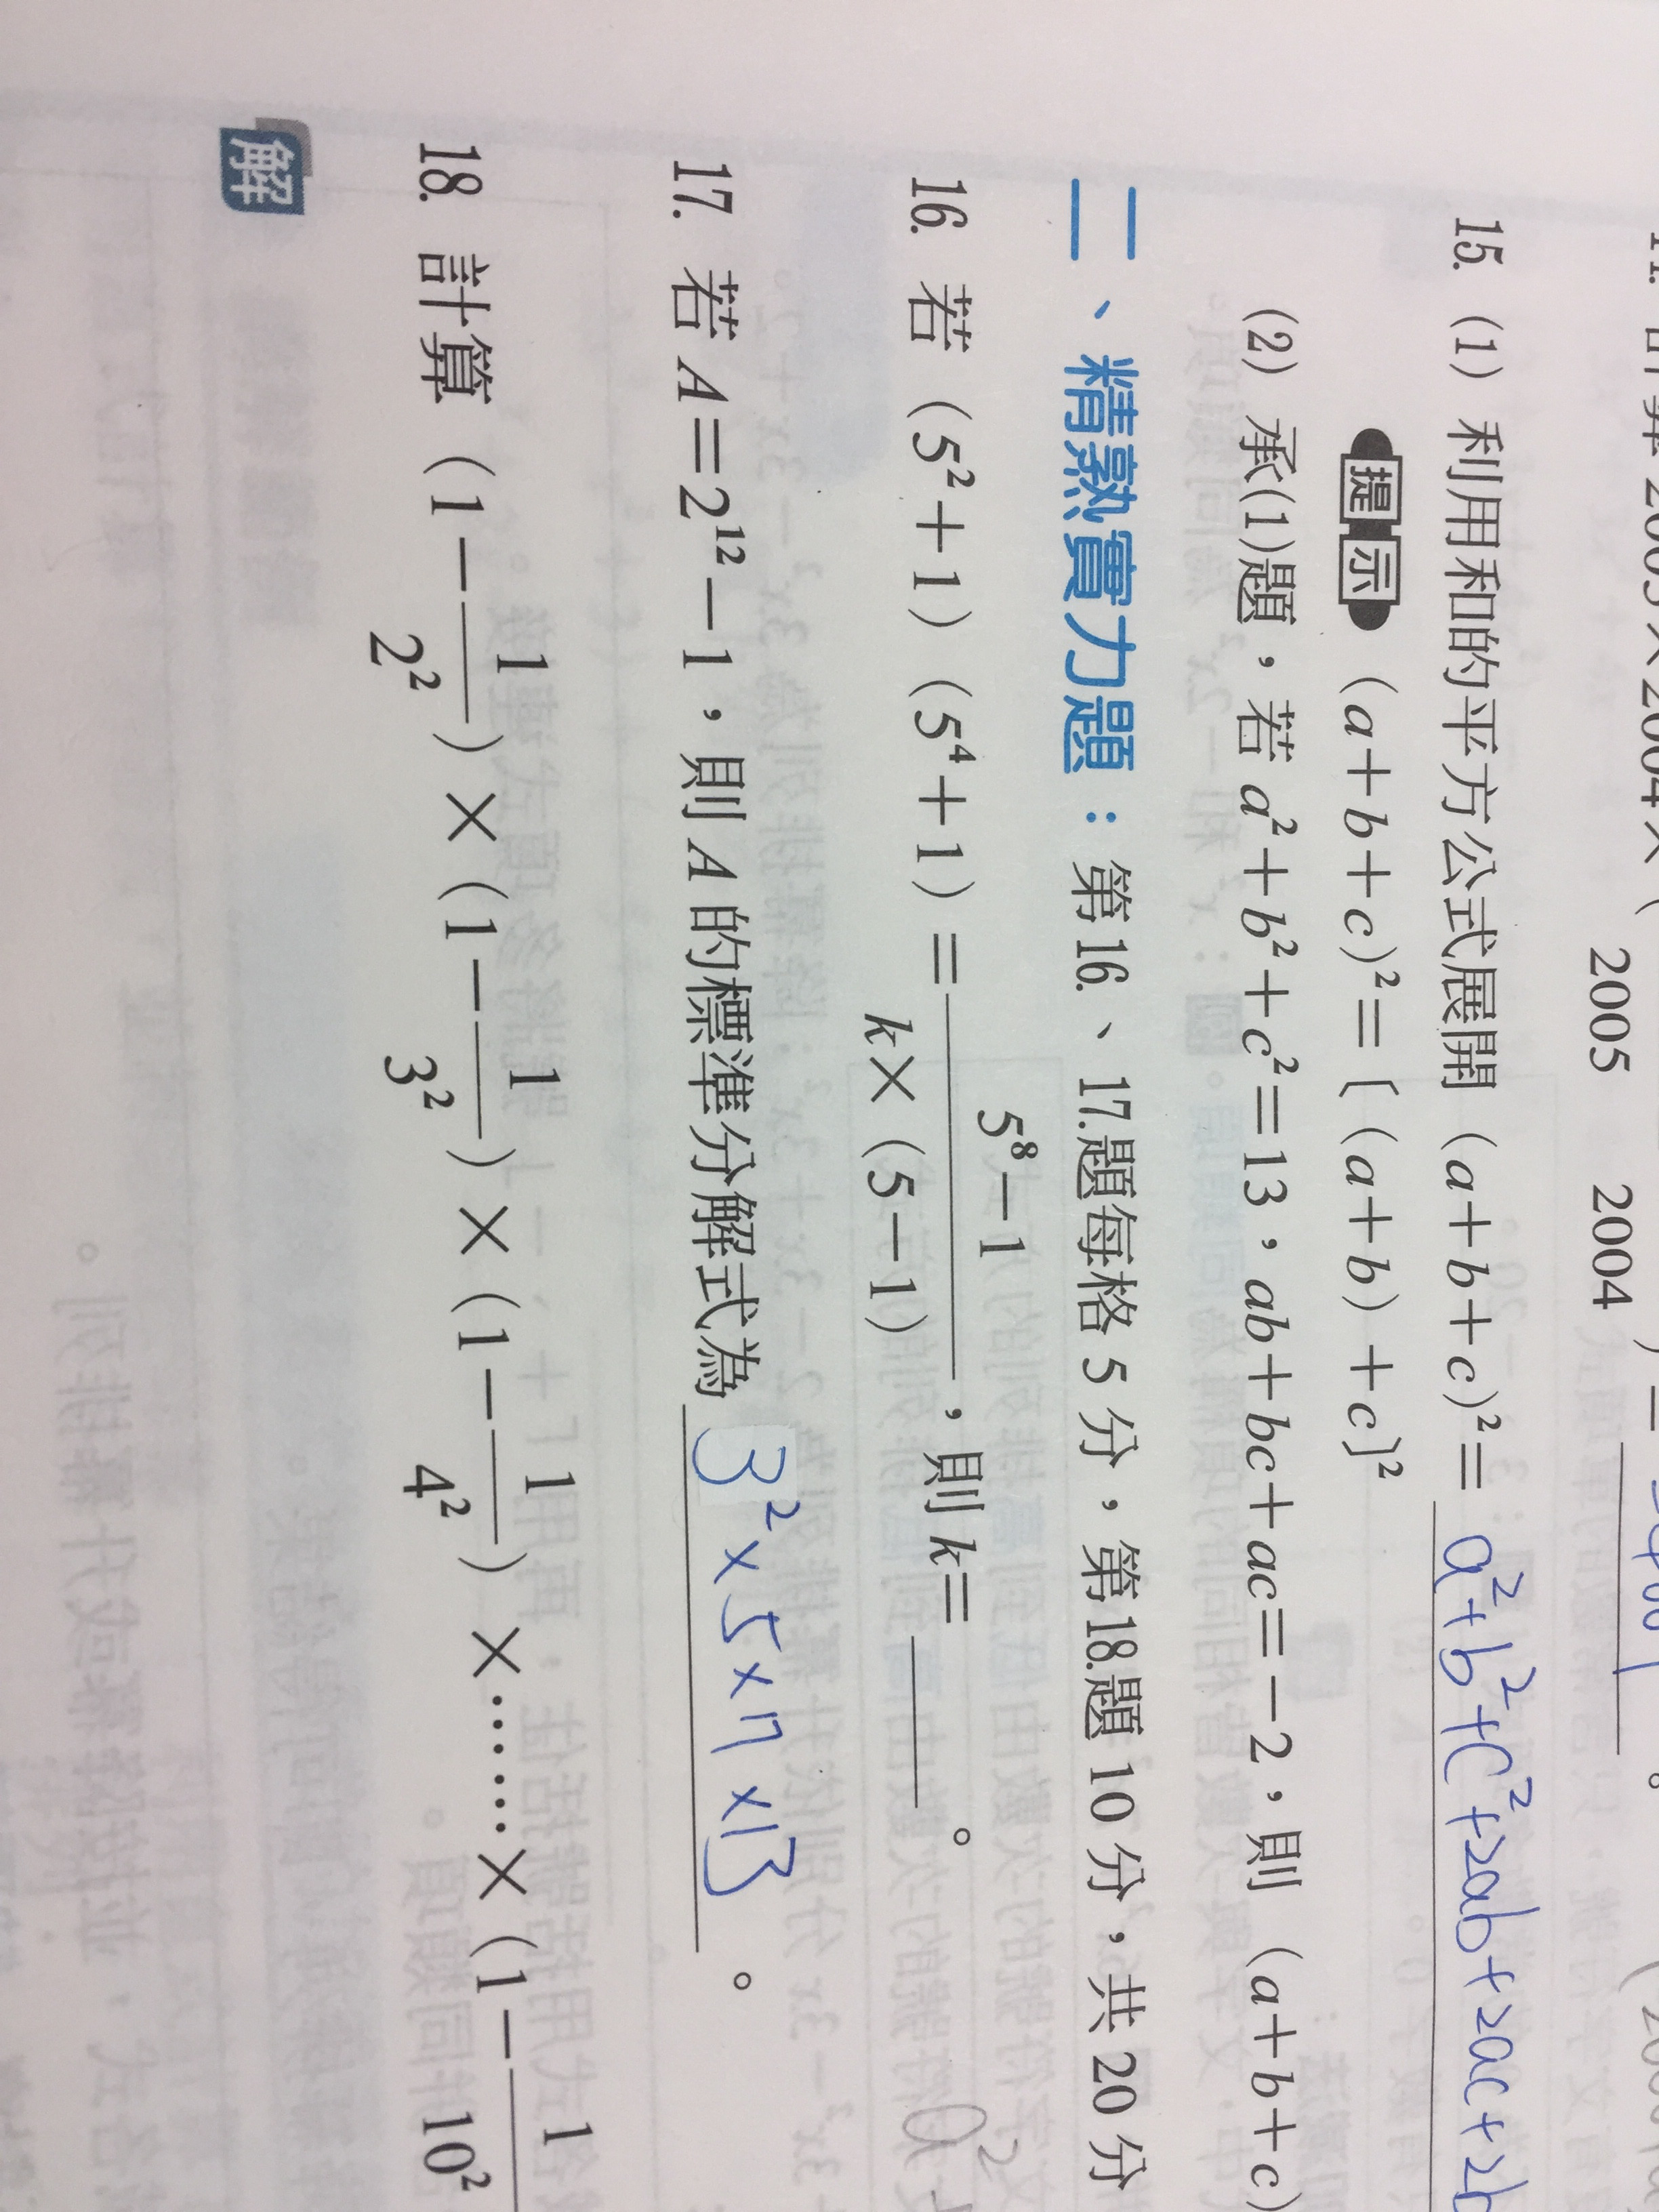 2005 2004
15. (1) 利用和的平方公式展開 (a+b+c)²= a²+b²+c²+2ab+2ac+2b
提示 (a+b+c)²=〔(a+b)+c〕²
(2) 承(1)題,若 a²+b²+c²=13,ab+bc+ac=-2,則 (a+b+c)
二、精熟實力題:第16.、17.題每格 5 分,第18.題 10 分,共 20 分
16. 若 (5²+1)(5⁴+1)= (5⁸-1)/(k×(5-1)) ,則 k=______。
17. 若 A=2¹²-1,則 A 的標準分解式為 3²×5×7×13 。
18. 計算 (1-1/2²)×(1-1/3²)×(1-1/4²)×……×(1-1/10²
解